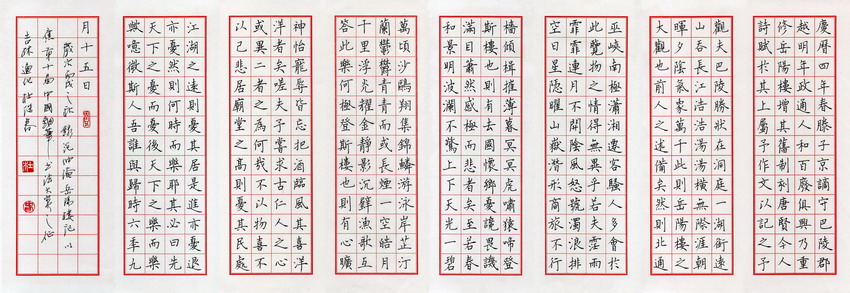 慶曆四年春滕子京謫守巴陵郡
越明年政通人和百廢俱興乃重
修岳陽樓增其舊制刻唐賢今人
詩賦於其上屬予作文以記之予
觀夫巴陵勝狀在洞庭一湖銜遠
山吞長江浩浩湯湯橫無際涯朝
暉夕陰氣象萬千此則岳陽樓之
大觀也前人之述備矣然則北通
巫峽南極瀟湘遷客騷人多會於
此覽物之情得無異乎若夫霪雨
霏霏連月不開陰風怒號濁浪排
空日星隱曜山嶽潛形商旅不行
檣傾楫摧薄暮冥冥虎嘯猿啼登
斯樓也則有去國懷鄉憂讒畏譏
滿目蕭然感極而悲者矣至若春
和景明波瀾不驚上下天光一碧
萬頃沙鷗翔集錦鱗游泳岸芷汀
蘭鬱鬱青青而或長煙一空皓月
千里浮光耀金靜影沉璧漁歌互
答此樂何極登斯樓也則有心曠
神怡寵辱皆忘把酒臨風其喜洋
洋者矣嗟夫予嘗求古仁人之心
或異二者之為何哉不以物喜不
以己悲居廟堂之高則憂其民處
江湖之遠則憂其君是進亦憂退
亦憂然則何時而樂耶其必曰先
天下之憂而憂後天下之樂而樂
歟噫微斯人吾誰與歸時六年九
月十五日
歲次丙戌之秋錄范仲淹岳陽樓記以
第十屆中國書法大賽之征
吉林通化杜浩春